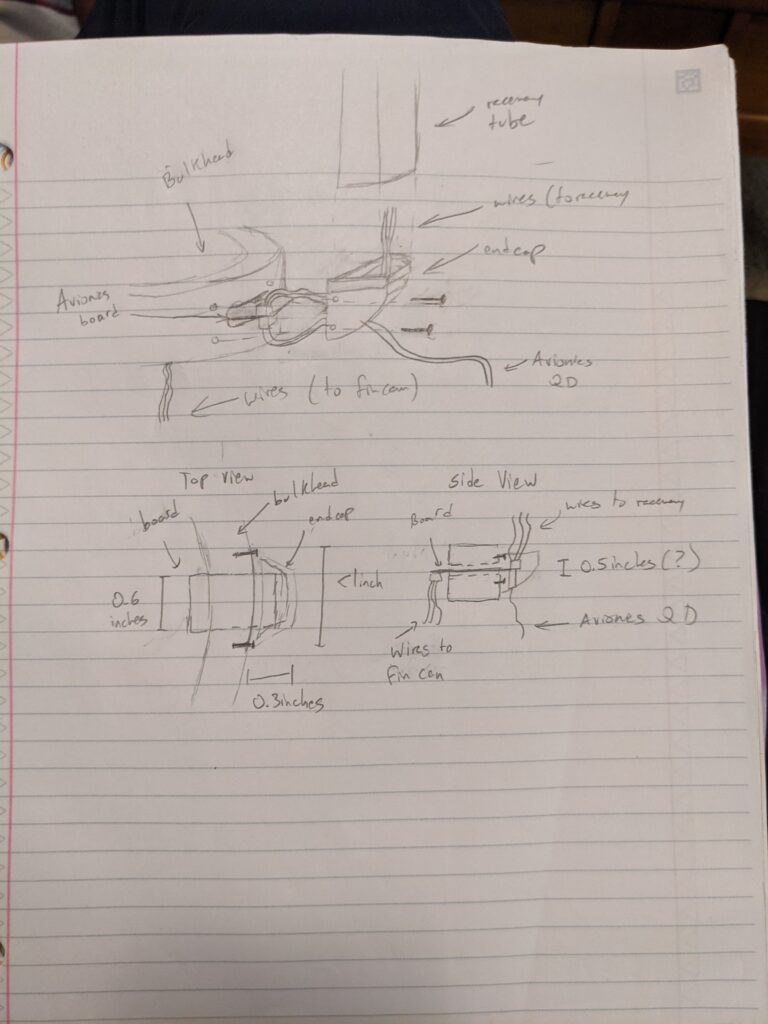 raceway
tube
Bulkhead
wires (to raceway
endcap
Avionics
board
Avionics
QD
wires (to fin can)
Top View
bulkhead
board
endcap
0.6
inches
<1inch
0.3inches
Side View
wires to raceway
Board
I 0.5inches (?)
Avionics QD
Wires to
Fin Can